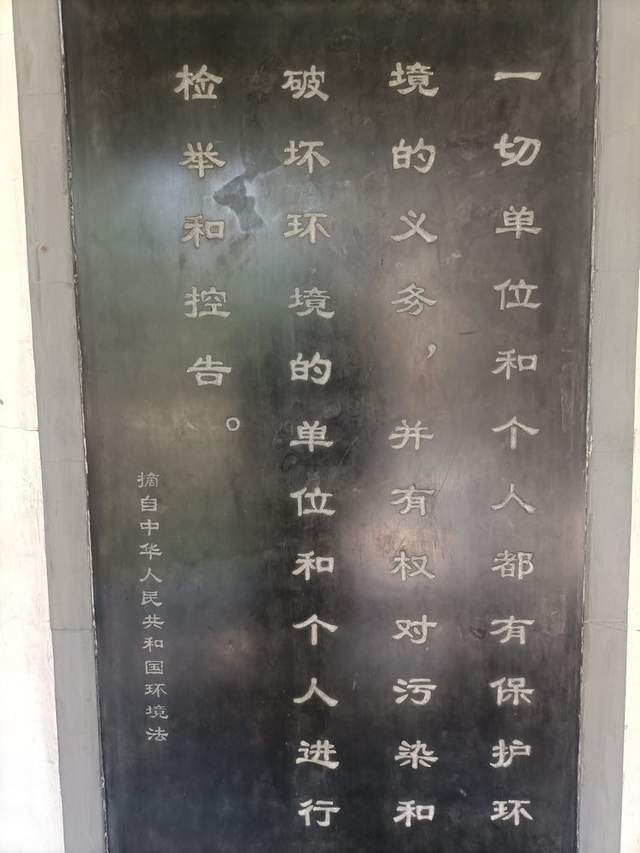 一切单位和个人都有保护环
境的义务，并有权对污染和
破坏环境的单位和个人进行
检举和控告。
摘自中华人民共和国环境法